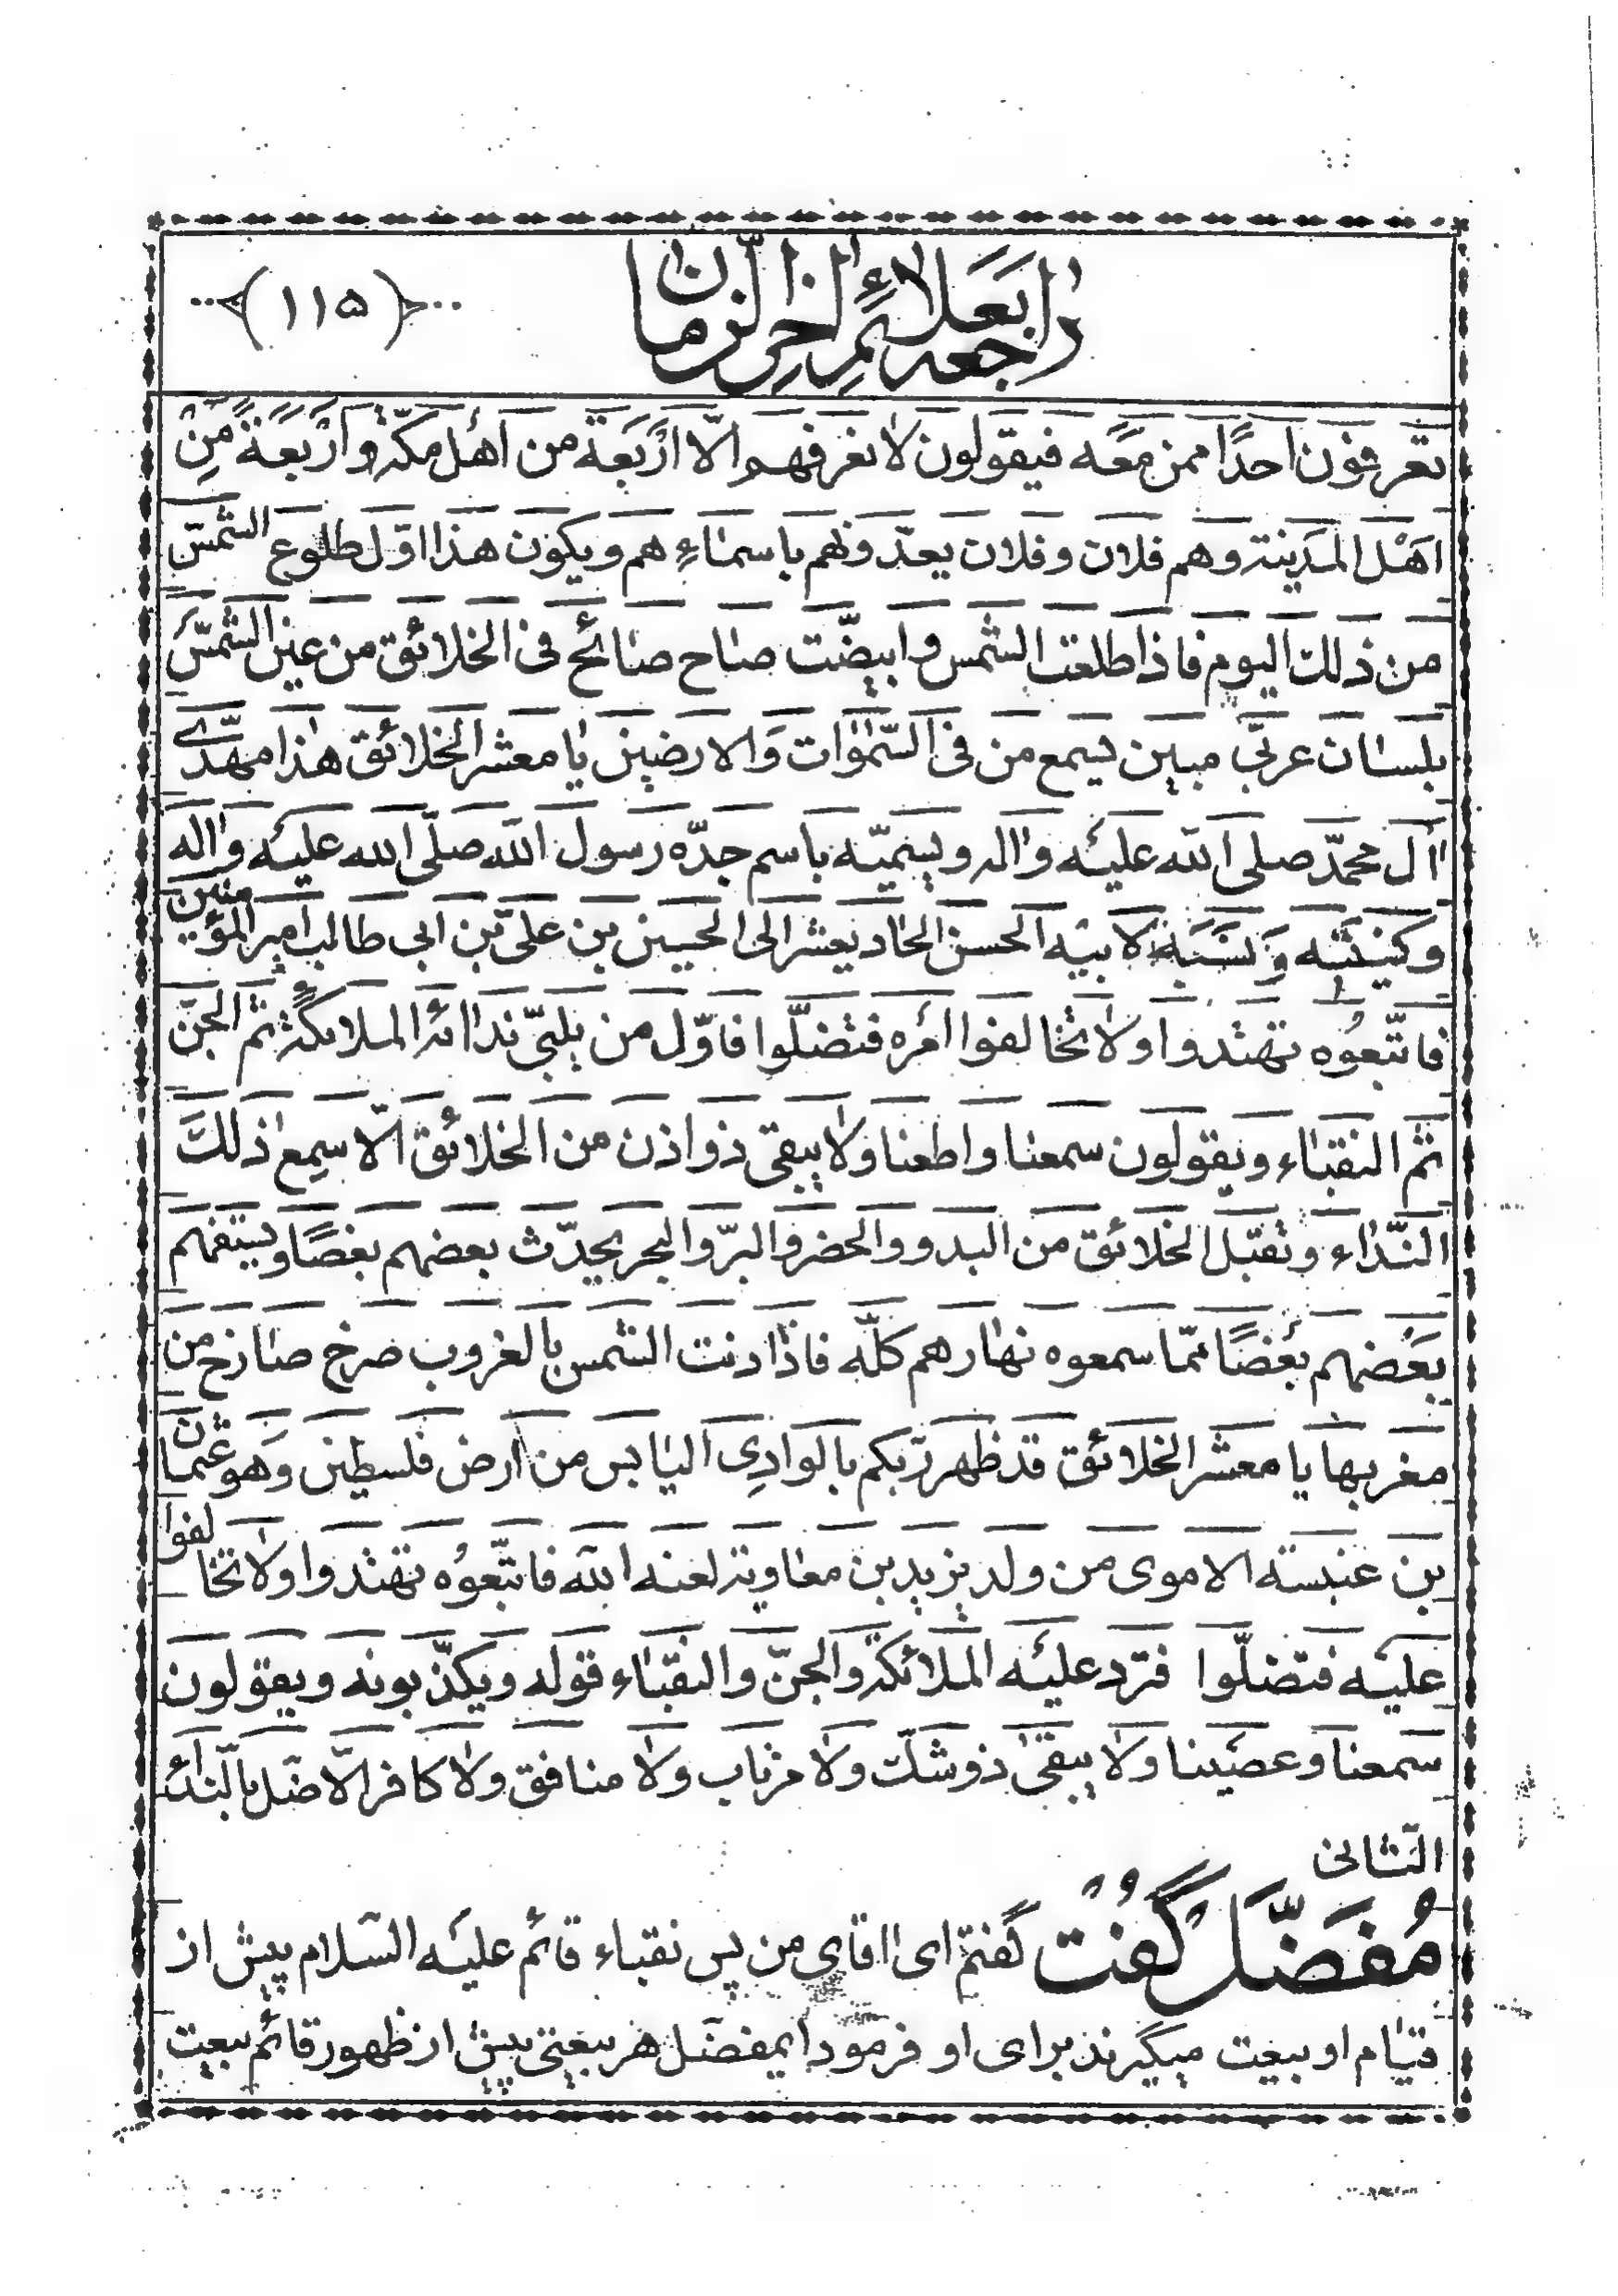 راجعه بعلائم اخر الزمان
(۱۱۵)
تعرفون احدًا ممن معه فيقولون لا نعرفهم الّا اربعة من اهل مكّة و اربعة من
اهل المدينة و هم فلان و فلان يعدّونهم باسماء هم و يكون هذا اوّل طلوع الشمس
من ذلك اليوم فاذا طلعت الشمس و ابيضّت صاح صائح فى الخلائق من عين الشمس
بلسان عربّى مبين يسمع من فى السّموات و الارضين يا معشر الخلائق هذا مهدّى
ال محمّد صلى الله عليه و اله و يسمّيه باسم جدّه رسول الله صلّى الله عليه و اله
و كنيته و نسبه لابيه الحسن الحاد يعشر الى الحسين بن علىّ بن ابى طالب امير المؤمنين
فاتّبعوه تهتدوا و لا تخالفوا امره فتضلّوا فاوّل من يلبّى ندائه الملائكة ثم الجنّ
ثم النقباء و يقولون سمعنا و اطعنا و لا يبقى ذو اذن من الخلائق الّا سمع ذلك
النّداء و تقبل الخلائق من البدو و الحضر و البرّ و البحر يحدّث بعضهم بعضًا و يستفهم
بعضهم بعضًا ممّا سمعوه نهارهم كلّه فاذا دنت الشمس بالغروب صرخ صارخ من
مغربها يا معشر الخلائق قد ظهر ربّكم بالوادى اليابس من ارض فلسطين و هو عثمان
بن عنبسة الاموى من ولد يزيد بن معاوية لعنه الله فاتّبعوه تهتدوا و لا تخالفوا
عليه فتضلّوا فتردّ عليه الملائكة و الجنّ و النقباء قوله و يكذّبونه و يقولون
سمعنا و عصينا و لا يبقى ذو شكّ و لا مرتاب و لا منافق و لا كافر الّا ضلّ بالنّداء
الثانى
مُفضّل گفت گفتم اى اقاى من پس نقباء قائم عليه السّلام پيش از
قيام او بيعت ميگيرند براى او فرمود ايمفضّل هر بيعتى پيش از ظهور قائم بيعت